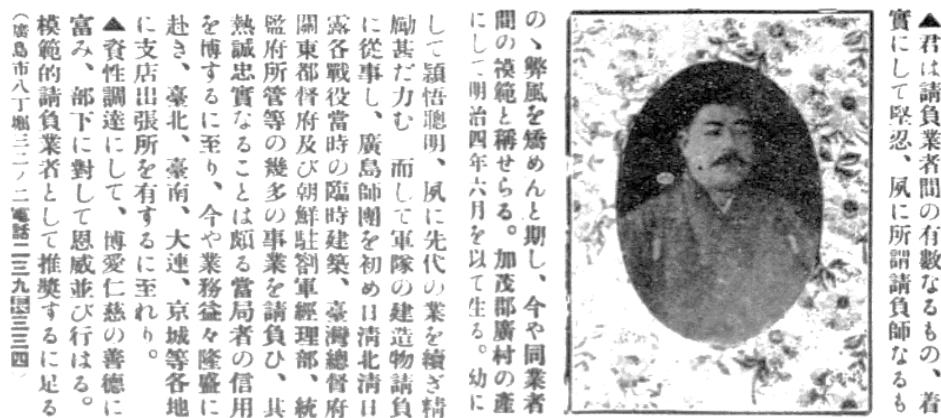 ▲君は請負業者間の有數なるもの、着
實にして堅忍、夙に所謂請負師なるも
のゝ弊風を矯めんと期し、今や同業者
間の模範と稱せらる。加茂郡廣村の產
にして明治四年六月を以て生る。幼に
して穎悟聰明、夙に先代の業を續ぎ精
勵甚だ力む 而して軍隊の建造物請負
に從事し、廣島師團を初め日淸北淸日
露各戰役當時の臨時建築、臺灣總督府
關東都督府及び朝鮮駐劄軍經理部、統
監府所管等の幾多の事業を請負ひ、其
熱誠忠實なることは頗る當局者の信用
を博するに至り、今や業務益々隆盛に
赴き、臺北、臺南、大連、京城等各地
に支店出張所を有するに至れり。
▲資性調達にして、博愛仁慈の善德に
富み、部下に對して恩威並び行はる。
模範的請負業者として推奬するに足る
(廣島市八丁堀三二ノ二電話二三九長三三四